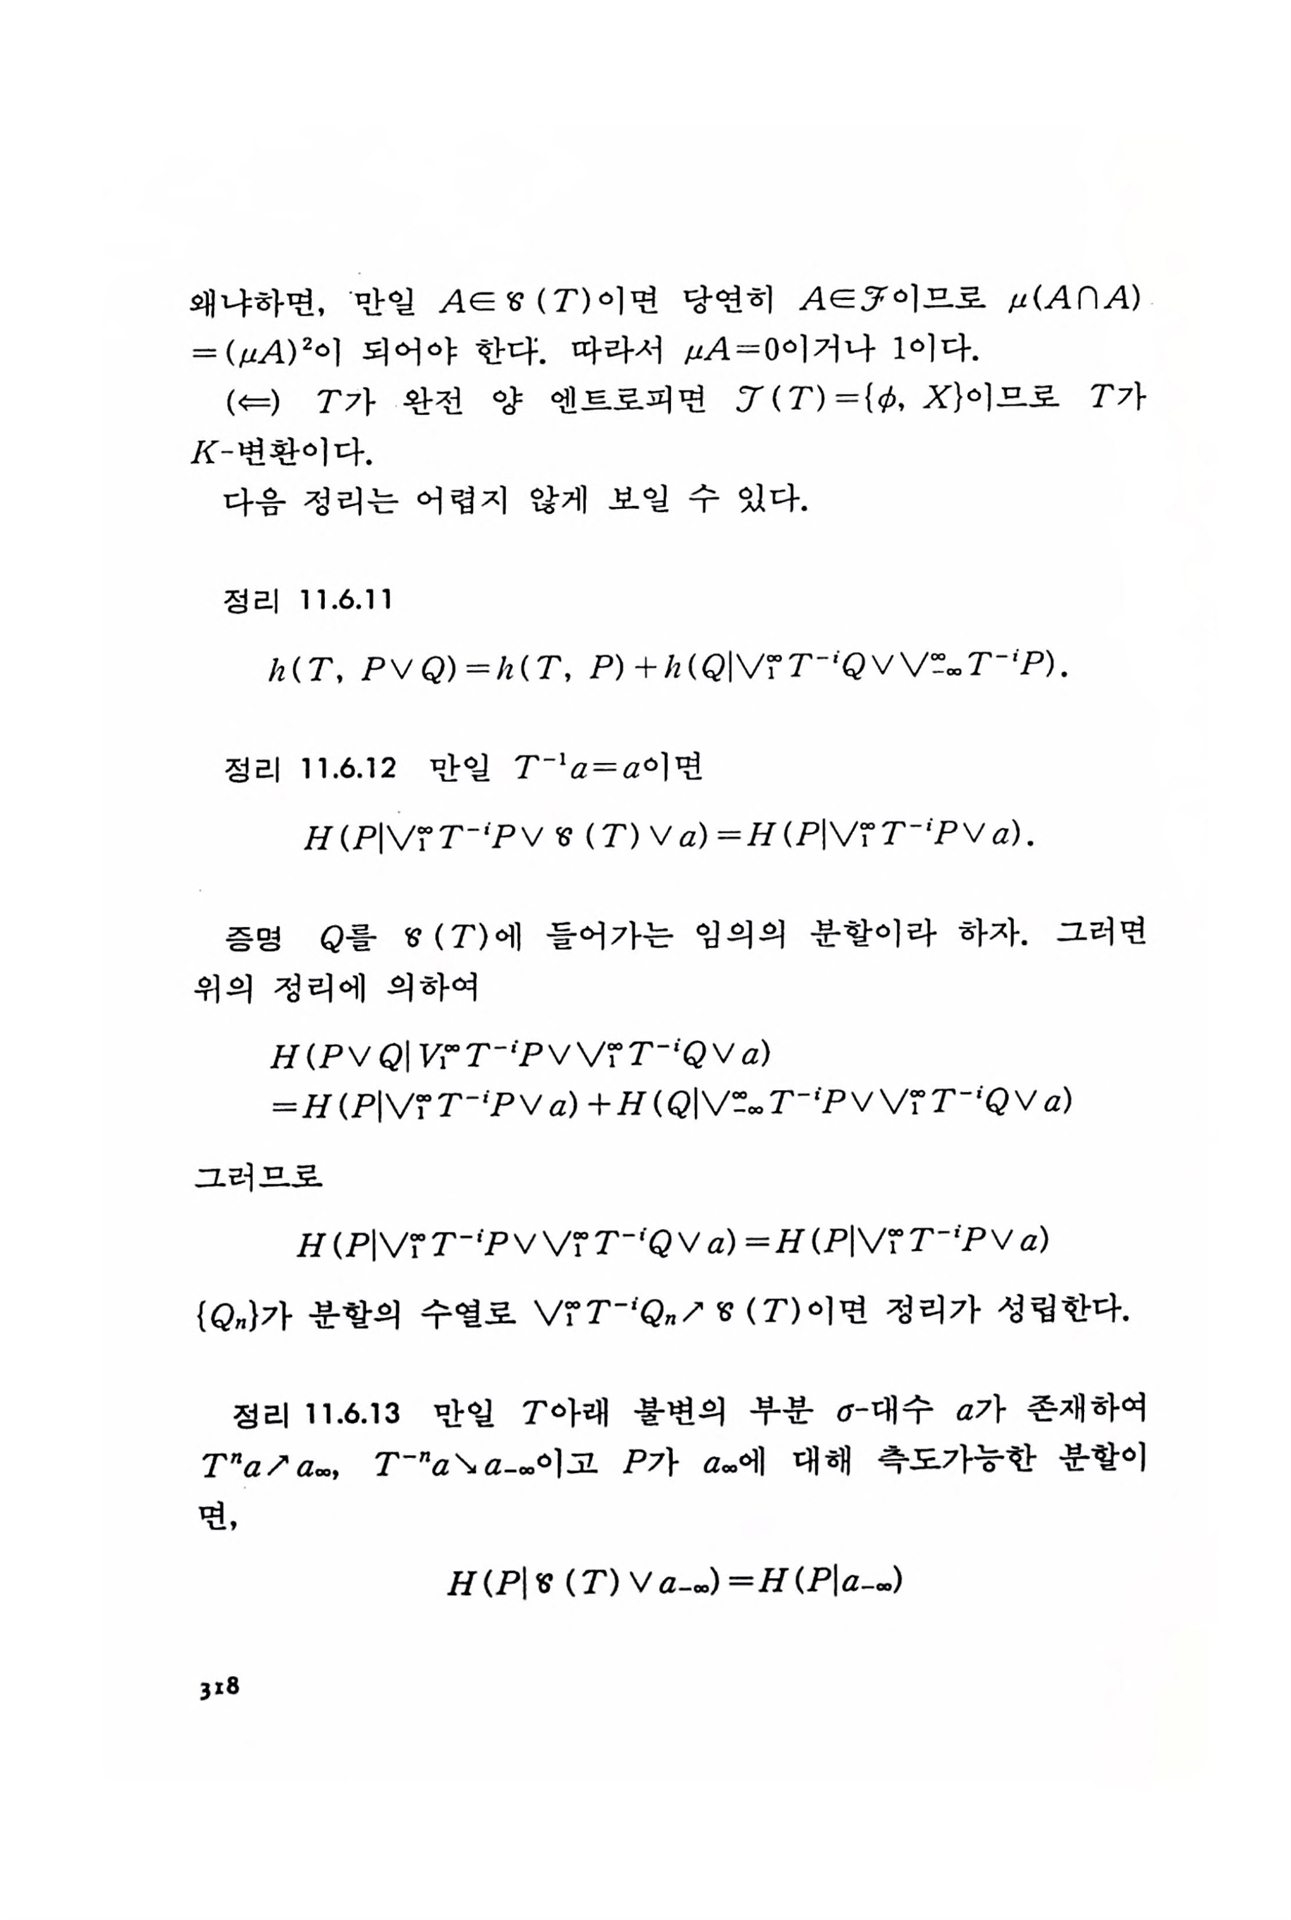 왜냐하면, 만일 A∈𝒯(T)이면 당연히 A∈ℱ이므로 μ(A∩A)
=(μA)²이 되어야 한다. 따라서 μA=0이거나 1이다.
(⇐) T가 완전 양 엔트로피면 𝒯(T)={φ, X}이므로 T가
K-변환이다.
다음 정리는 어렵지 않게 보일 수 있다.
정리 11.6.11
h(T, P∨Q)=h(T, P)+h(Q|∨₁^∞T⁻ⁱQ∨∨₋∞^∞T⁻ⁱP).
정리 11.6.12 만일 T⁻¹a=a이면
H(P|∨₁^∞T⁻ⁱP∨𝒯(T)∨a)=H(P|∨₁^∞T⁻ⁱP∨a).
증명 Q를 𝒯(T)에 들어가는 임의의 분할이라 하자. 그러면
위의 정리에 의하여
H(P∨Q|V₁^∞T⁻ⁱP∨∨₁^∞T⁻ⁱQ∨a)
=H(P|∨₁^∞T⁻ⁱP∨a)+H(Q|∨₋∞^∞T⁻ⁱP∨∨₁^∞T⁻ⁱQ∨a)
그러므로
H(P|∨₁^∞T⁻ⁱP∨∨₁^∞T⁻ⁱQ∨a)=H(P|∨₁^∞T⁻ⁱP∨a)
{Qₙ}가 분할의 수열로 ∨₁^∞T⁻ⁱQₙ↗𝒯(T)이면 정리가 성립한다.
정리 11.6.13 만일 T아래 불변의 부분 σ-대수 a가 존재하여
Tⁿa↗a∞, T⁻ⁿa↘a₋∞이고 P가 a∞에 대해 측도가능한 분할이
면,
H(P|𝒯(T)∨a₋∞)=H(P|a₋∞)
318